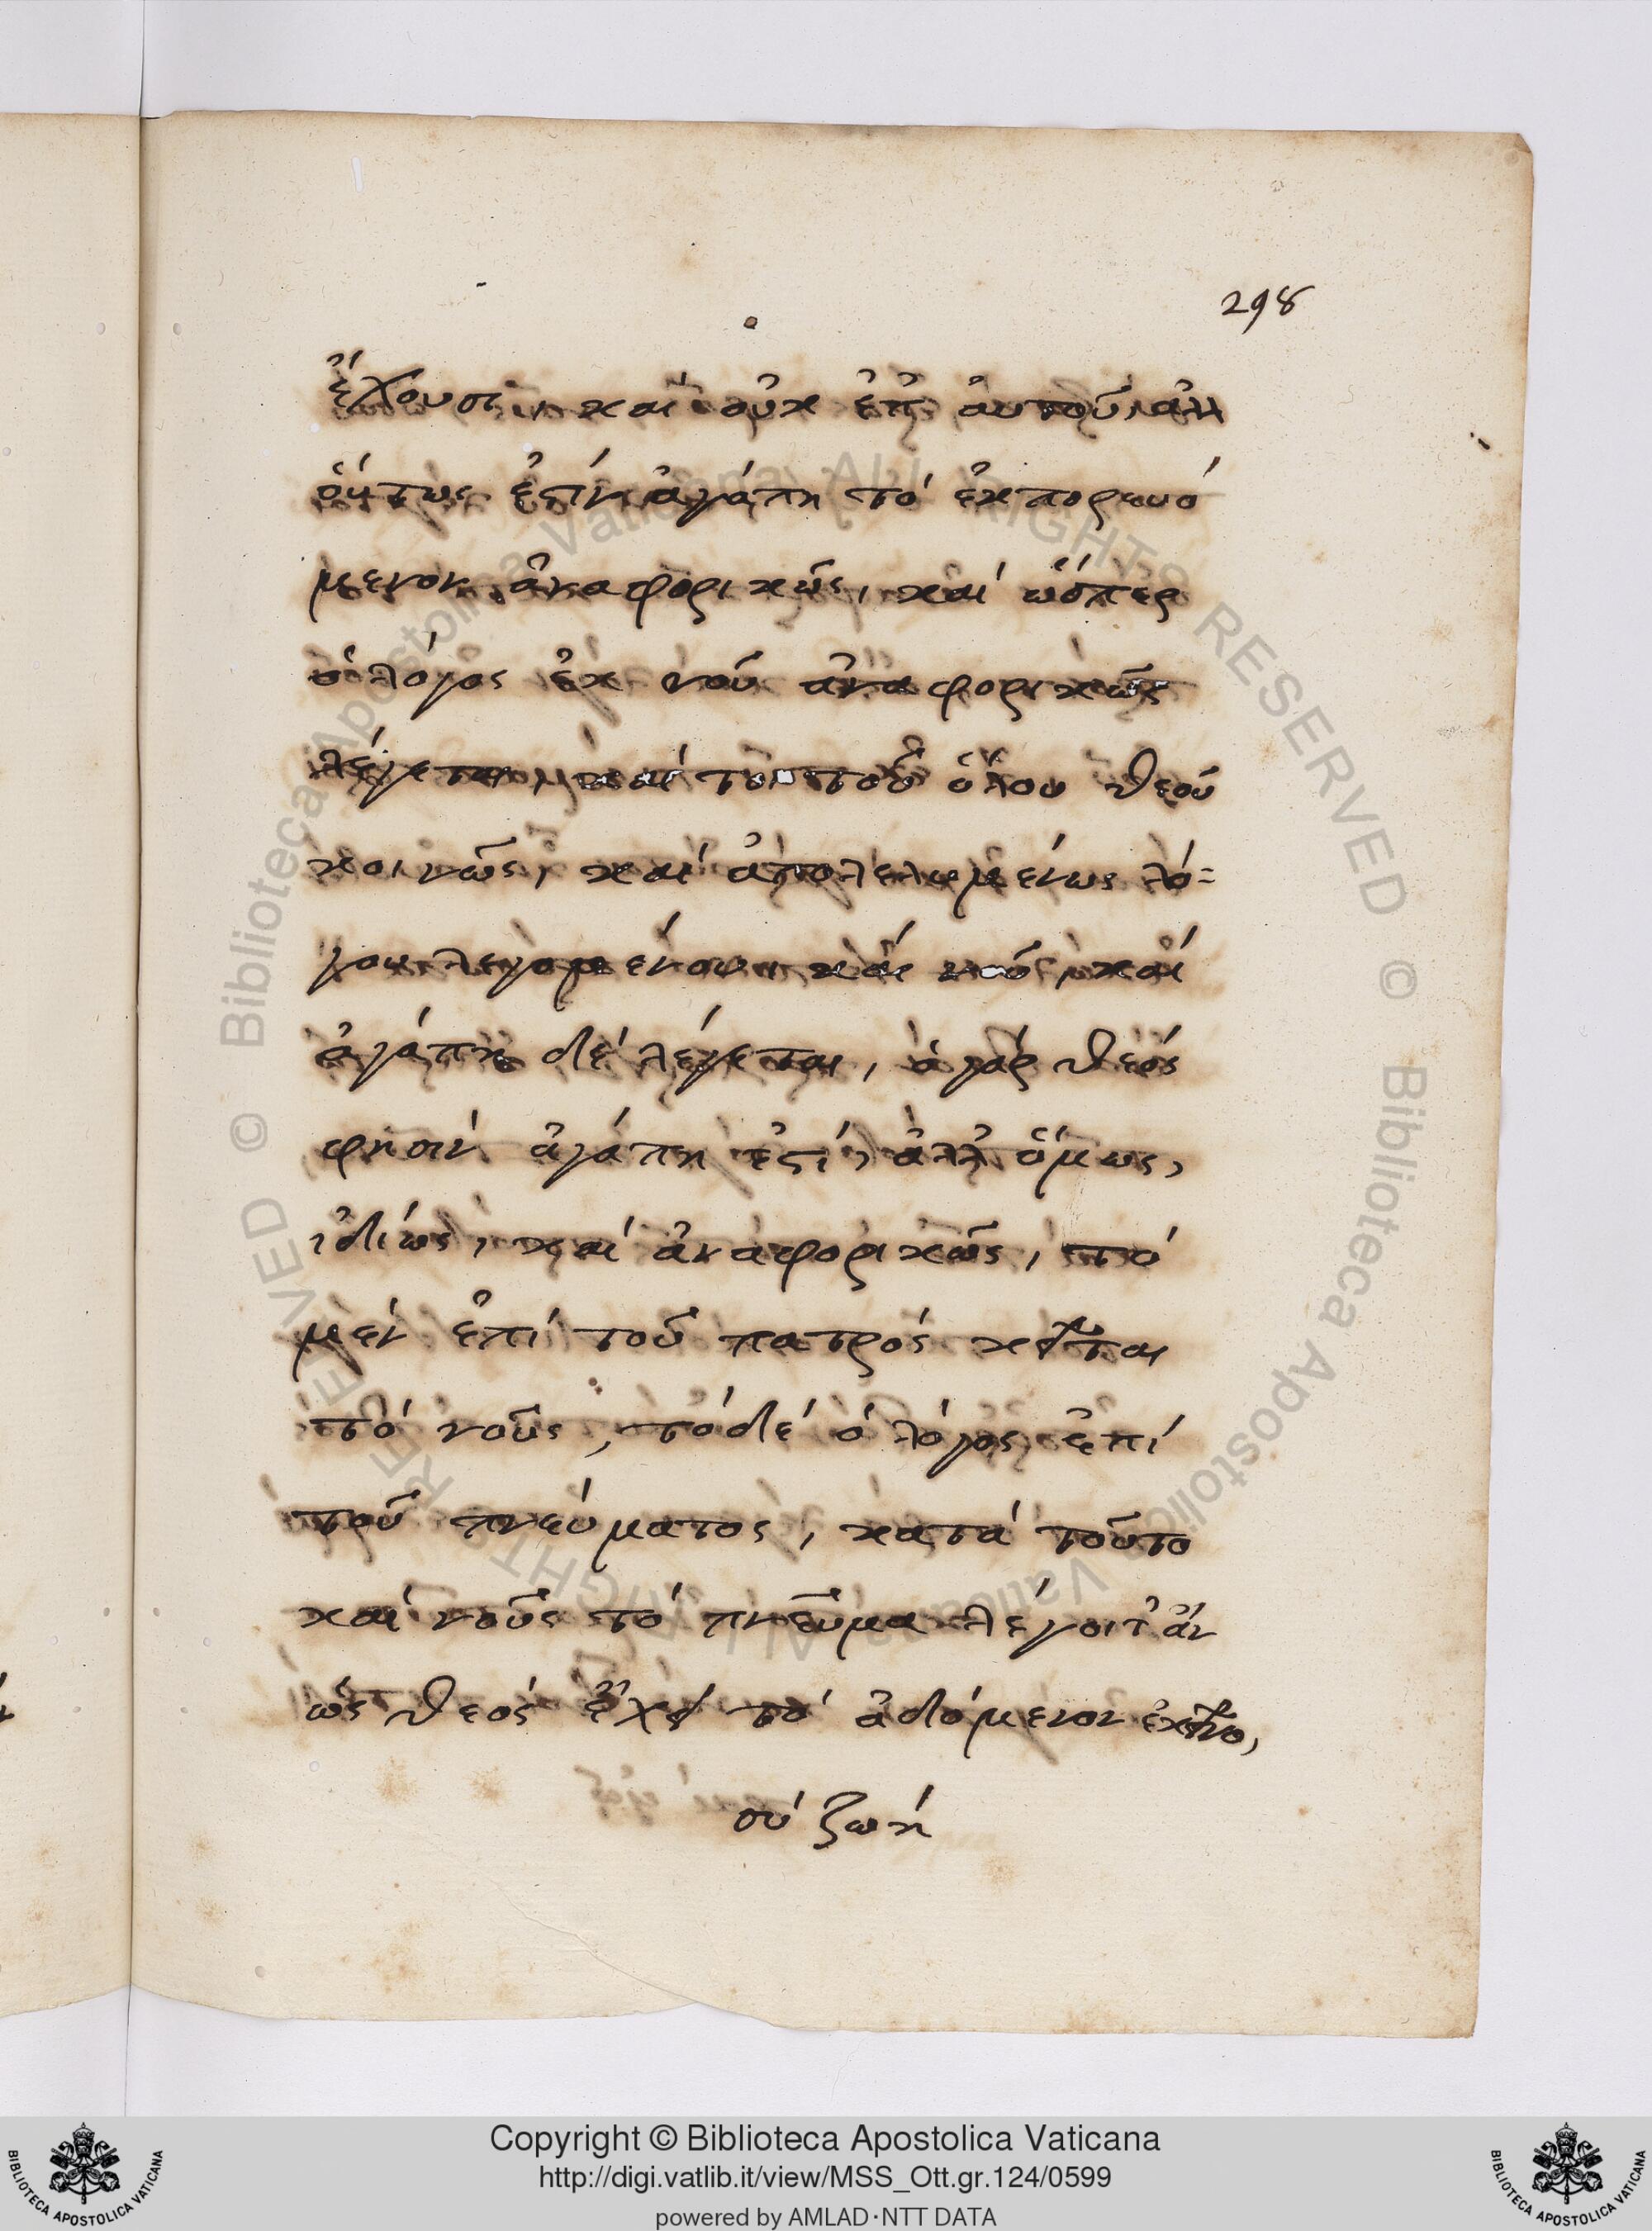 298
ἔχουσι, καὶ οὐκ ἐπ αὐτοῦ, ἀλλ
οὕτως ἐστὶν ἀγάπη τὸ ἐκπορευό
μενον ἀναφορικῶς, καὶ ὥσπερ
ὁ λόγος ἐκ νοῦ ἀναφορικῶς
λέγεται, καὶ τοι τοῦ ὅλου θεοῦ
κοινῶς, καὶ ἀπολελυμένως λό-
γου λεγομένου, καὶ νοῦ, καὶ
ἀγάπη δὲ λέγεται, ὁ γάρ θεός
φησιν ἀγάπη ἐστί, ἀλλ' ὅμως,
ἰδίως, καὶ ἀναφορικῶς, τὸ
μὲν ἐπί τοῦ πατρός κεῖται
τὸ νοῦς, τὸ δέ ὁ λόγος ἐπί
τοῦ πνεύματος, κατά τοῦτο
καί νοῦς τό πνεῦμα λέγοιτ' ἄν
ὡς θεός ἔχει τό ᾀδόμενον ἐκεῖνο,
σύ ζωή
Copyright © Biblioteca Apostolica Vaticana
http://digi.vatlib.it/view/MSS_Ott.gr.124/0599
powered by AMLAD·NTT DATA
BIBLIOTECA APOSTOLICA VATICANA
BIBLIOTECA APOSTOLICA VATICANA
© Biblioteca Apostolica Vaticana ALL RIGHTS RESERVED © Biblioteca Apostolica Vaticana ALL RIGHTS RESERVED